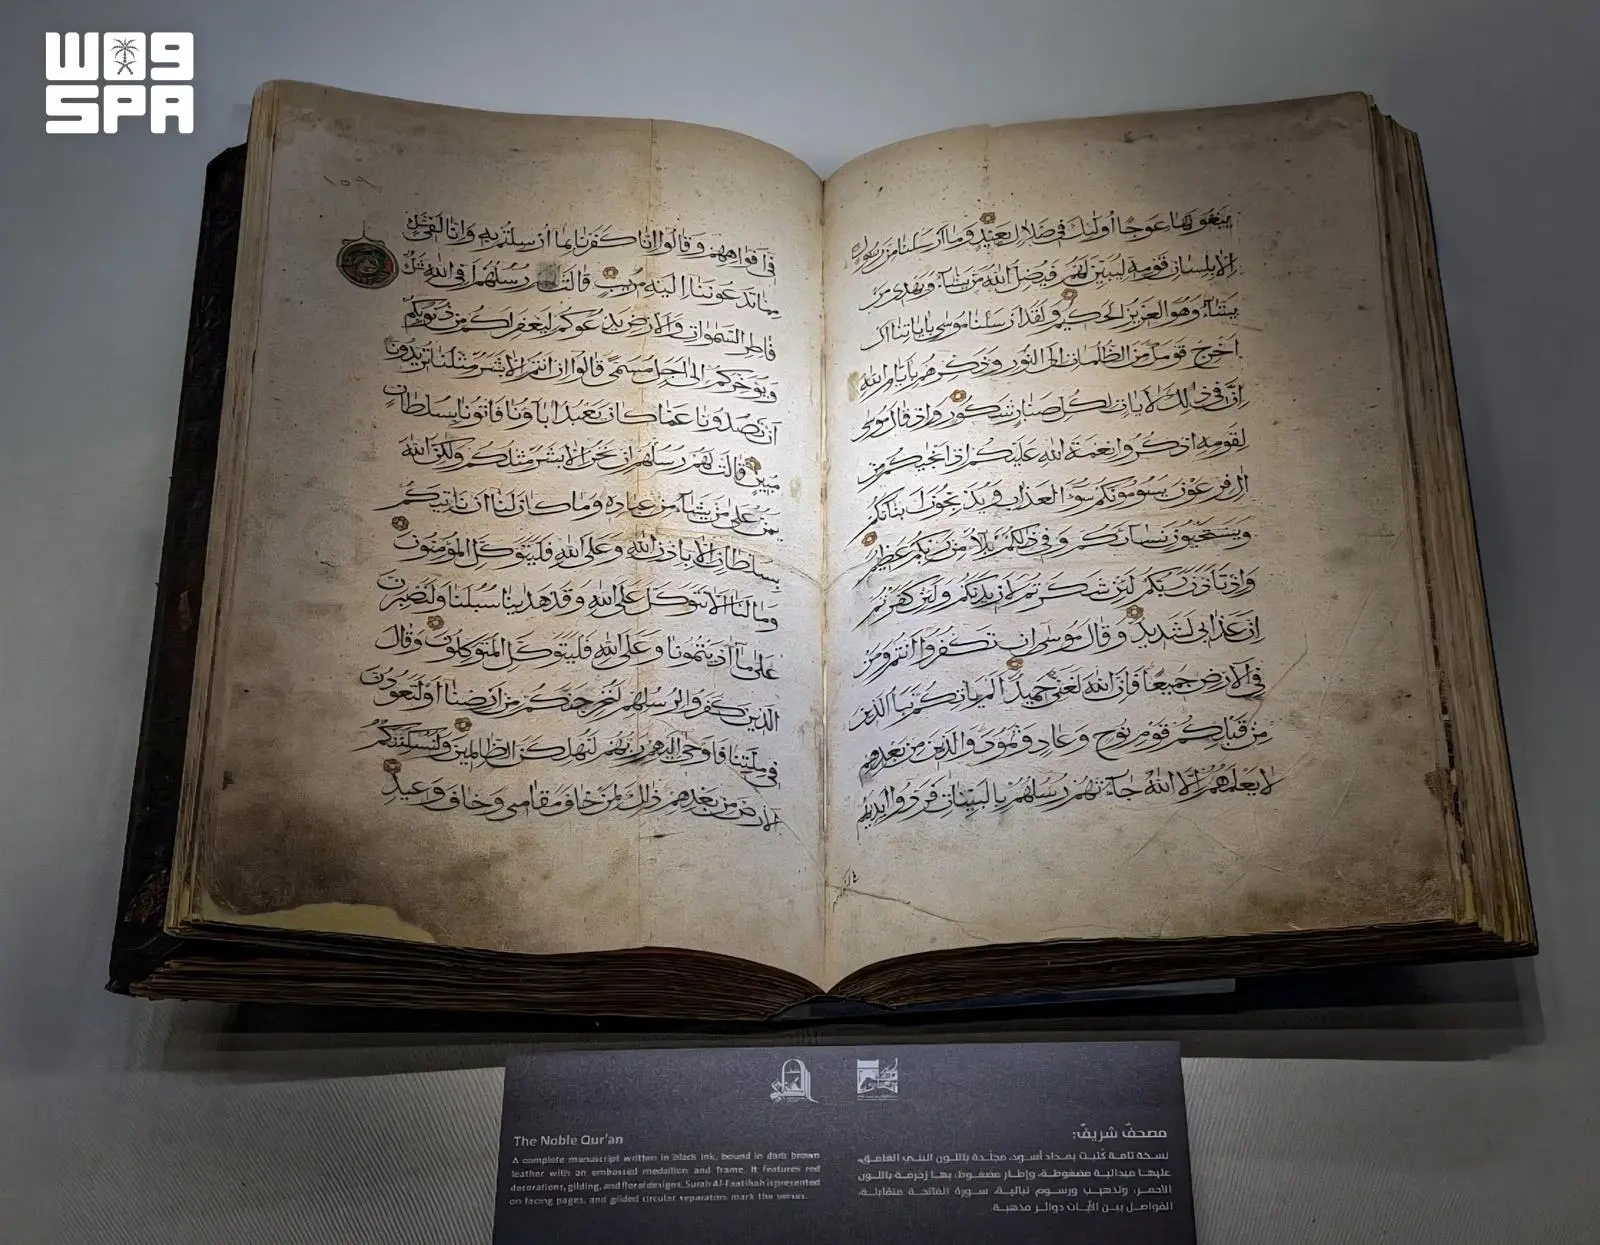 WAS
SPA
يبغونها عوجا أولئك في ضلال بعيد وما أرسلنا من رسول
إلا بلسان قومه ليبين لهم فيضل الله من يشاء ويهدي من
يشاء وهو العزيز الحكيم ولقد أرسلنا موسى بآياتنا أن
أخرج قومك من الظلمات إلى النور وذكرهم بأيام الله
إن في ذلك لآيات لكل صبار شكور وإذ قال موسى
لقومه اذكروا نعمة الله عليكم إذ أنجيكم من
آل فرعون يسومونكم سوء العذاب ويذبحون أبناءكم
ويستحيون نساءكم وفي ذلكم بلاء من ربكم عظيم
وإذ تأذن ربكم لئن شكرتم لأزيدنكم ولئن كفرتم
إن عذابي لشديد وقال موسى إن تكفروا أنتم ومن
في الأرض جميعا فإن الله لغني حميد ألم يأتكم نبأ الذين
من قبلكم قوم نوح وعاد وثمود والذين من بعدهم
لا يعلمهم إلا الله جاءتهم رسلهم بالبينات فردوا أيديهم
في أفواههم وقالوا إنا كفرنا بما أرسلتم به وإنا لفي شك
مما تدعوننا إليه مريب قالت رسلهم أفي الله شك
فاطر السموات والأرض يدعوكم ليغفر لكم من ذنوبكم
ويؤخركم إلى أجل مسمى قالوا إن أنتم إلا بشر مثلنا تريدون
أن تصدونا عما كان يعبد آباؤنا فأتونا بسلطان
مبين قالت لهم رسلهم إن نحن إلا بشر مثلكم ولكن الله
يمن على من يشاء من عباده وما كان لنا أن نأتيكم
بسلطان إلا بإذن الله وعلى الله فليتوكل المؤمنون
وما لنا ألا نتوكل على الله وقد هدينا سبلنا ولنصبرن
على ما آذيتمونا وعلى الله فليتوكل المتوكلون وقال
الذين كفروا لرسلهم لنخرجنكم من أرضنا أو لتعودن
في ملتنا فأوحى إليهم ربهم لنهلكن الظالمين ولنسكننكم
الأرض من بعدهم ذلك لمن خاف مقامي وخاف وعيد
The Noble Qur'an
A complete manuscript written in black ink, bound in dark brown
leather with an embossed medallion and frame. It features red
decorations, gilding, and floral designs. Surah Al-Faatihah is presented
on facing pages, and gilded circular separators mark the verses.
مصحف شريف:
نسخة تامة كُتبت بمداد أسود، مجلّدة باللون البني الغامق،
عليها ميدالية مضغوطة، وإطار مضغوط، بها زخرفة باللون
الأحمر، وتذهيب ورسوم نباتية، سورة الفاتحة متقابلة،
الفواصل بين الآيات دوائر مذهبة.